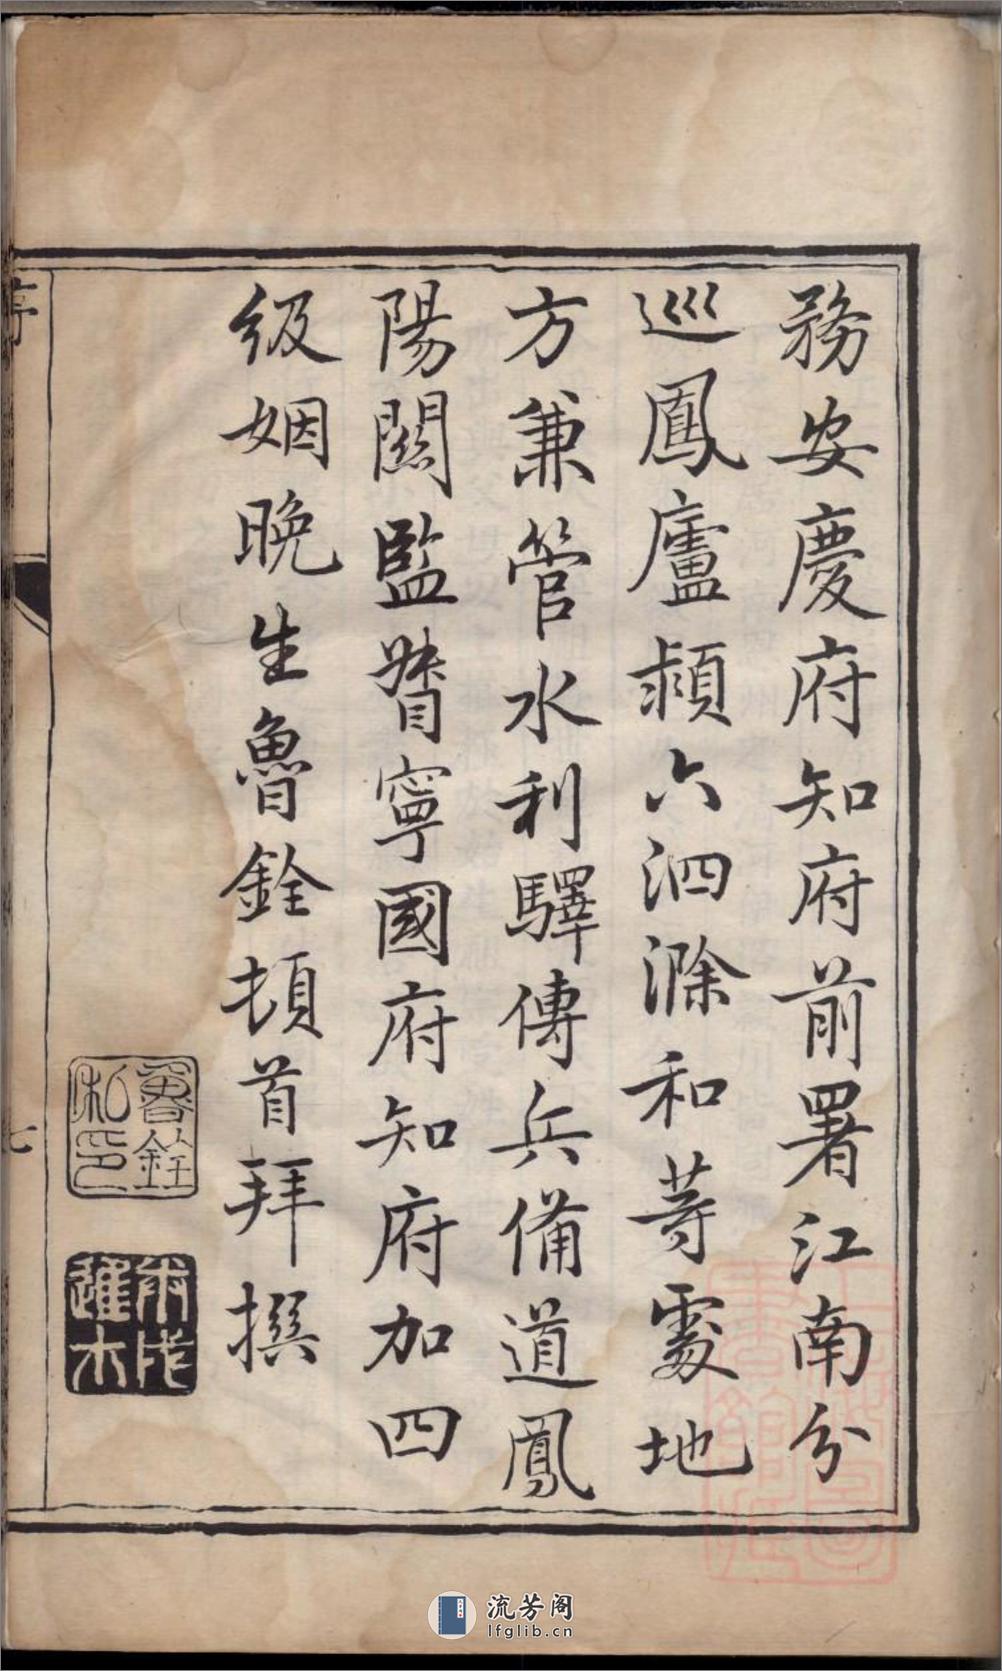 務安慶府知府前署江南分
巡鳳廬潁六泗滁和等處地
方兼管水利驛傳兵備道鳳
陽關監督寧國府知府加四
級姻晚生魯銓頓首拜撰
魯銓
私印
序
七
流芳阁
lfglib.cn